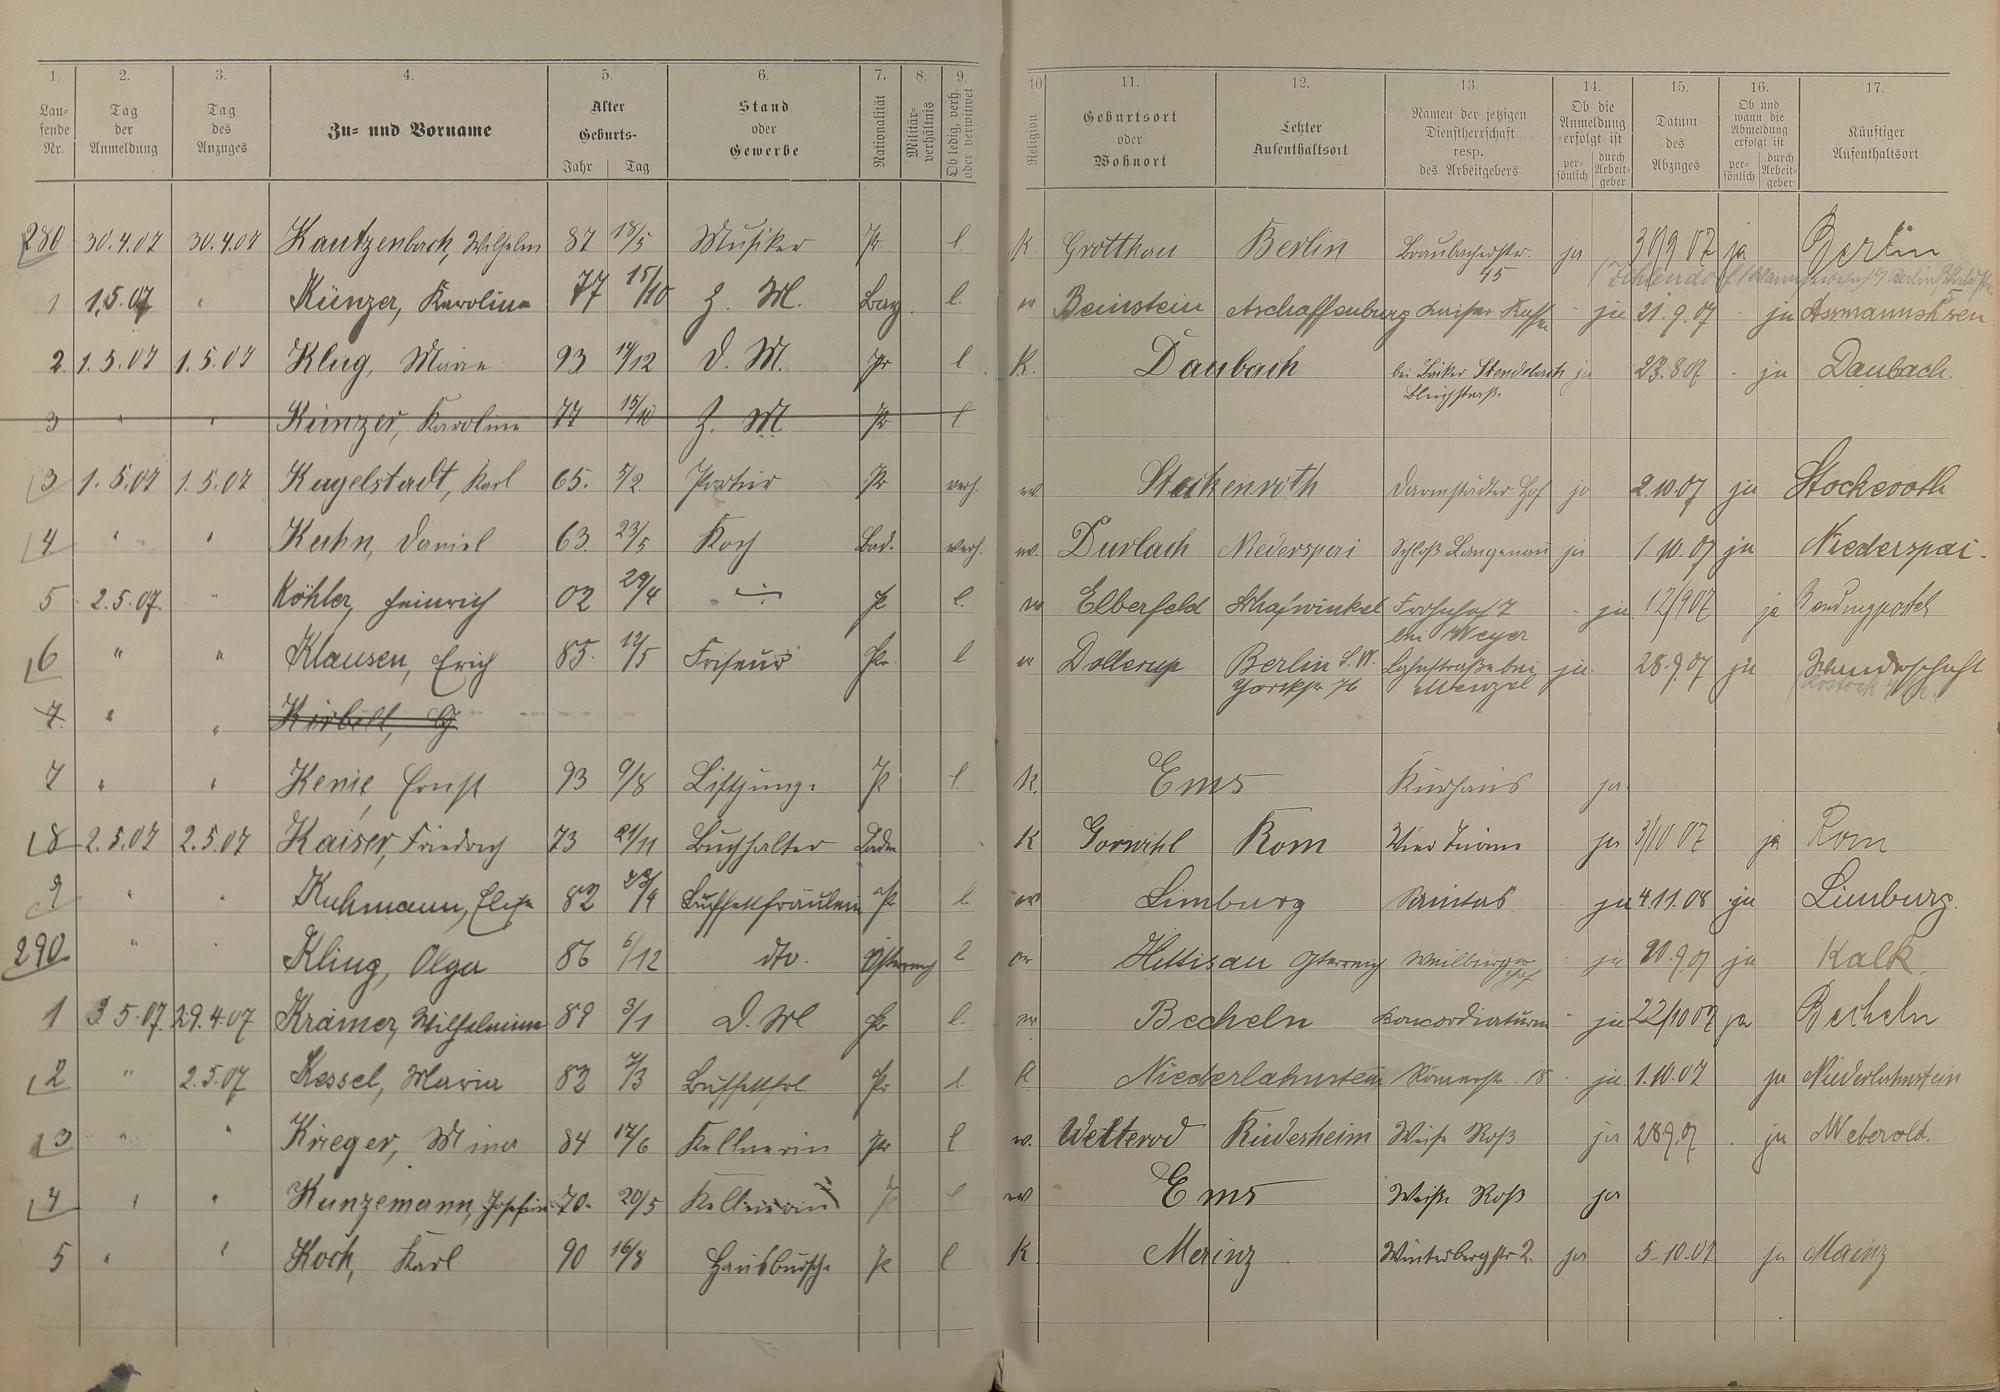 1. 2. 3. 4. 5. 6. 7. 8. 9. 10 11. 12. 13. 14. 15. 16. 17.
Laufende Nr. Tag der Anmeldung Tag des Anzuges Zu- und Vorname Alter Geburts- Jahr Tag Stand oder Gewerbe Nationalität Militärverhältnis Ob ledig, verh. oder verwitwet Religion Geburtsort oder Wohnort Letzter Aufenthaltsort Namen der jetzigen Dienstherrschaft resp. des Arbeitgebers Ob die Anmeldung erfolgt ist persönlich durch Arbeitgeber Datum des Abzuges Ob und wann die Abmeldung erfolgt ist persönlich durch Arbeitgeber Künftiger Aufenthaltsort
280 30.4.07 30.4.07 Kautzenbach, Wilhelm 87 18/5 Musiker Pr l K. Grotthau Berlin Braubacherstr. 45 ja 30/9 07 ja Berlin
1 1.5.07 " Künzer, Karoline 77 15/10 Z. M. Bay. l. ev Beinstein Aschaffenburg ja 21.9.07 ja
2. 1.5.07 1.5.07 Klug, Marie 93 14/12 D. M. Pr l K. Daubach bei ja 23.8.07 ja Daubach.
3 " " Künzer, Karoline 77 15/10 Z. M. Pr l
3 1.5.07 1.5.07 Kugelstadt, Karl 65. 5/2 Portier Pr verh. ev. Steckenroth Darmstädter Hof ja 2.10.07 ja Stockeroth
4 " " Kuhn, Daniel 63. 23/5 Koch Bad. verh. ev. Durlach Niederspai Schloß Langenau ja 1.10.07 ja Niederspai.
5 2.5.07. " Köhler, Heinrich 02 29/4 Pr l. ev Elberfeld ja 12/9 07 ja
6 " " Klausen, Erich 85. 12/5 Friseur Pr. l ev Dollerup Berlin S.W. Yorckstr. 76 Lahnstraße bei Menzel ja 28.9.07 ja Wanderschaft
7. " " Kirbell, G
7 " " Kenie, Ernst 93 9/8 Liftjunge Pr l. K. Ems Kurhaus ja.
8 2.5.07 2.5.07 Kaiser, Friedrich 73 21/11 Buchhalter Baden K Rom Vier Türme ja 3/10 07 ja Rom
9 " " Kuhmann, Elise 82 Buffettfräulein Pr l. ev Limburg ja 4.11.08 ja Limburg.
290 " " Kling, Olga 86 6/12 dto. Österreich l Hittisau Österreich Weilburger Hof ja 20.9.07 ja Kalk.
1 3.5.07 29.4.07 Krämer, Wilhelmine 89 3/1 D. M Pr l. ev Becheln Konkordiaturm ja 22/10 07 ja Becheln
2 " 2.5.07 Kessel, Maria 82 7/3 Buffettfrl Pr l. K Niederlahnstein Römerstr. 18 ja 1.10.07 ja Niederlahnstein
3 " " Krieger, Mina 84 Kellnerin Pr l ev. Wetterod Rüdesheim Weiße Roß ja 28.9.07 ja
4 " " Kunzemann, Josefine 70. 20/5 Kellnerin Pr l ev Ems Weiße Roß ja
5 " " Koch, Karl 90 16/8 Hausbursche Pr l K. Mainz Winterbergstr 2. ja 5.10.07 ja Mainz